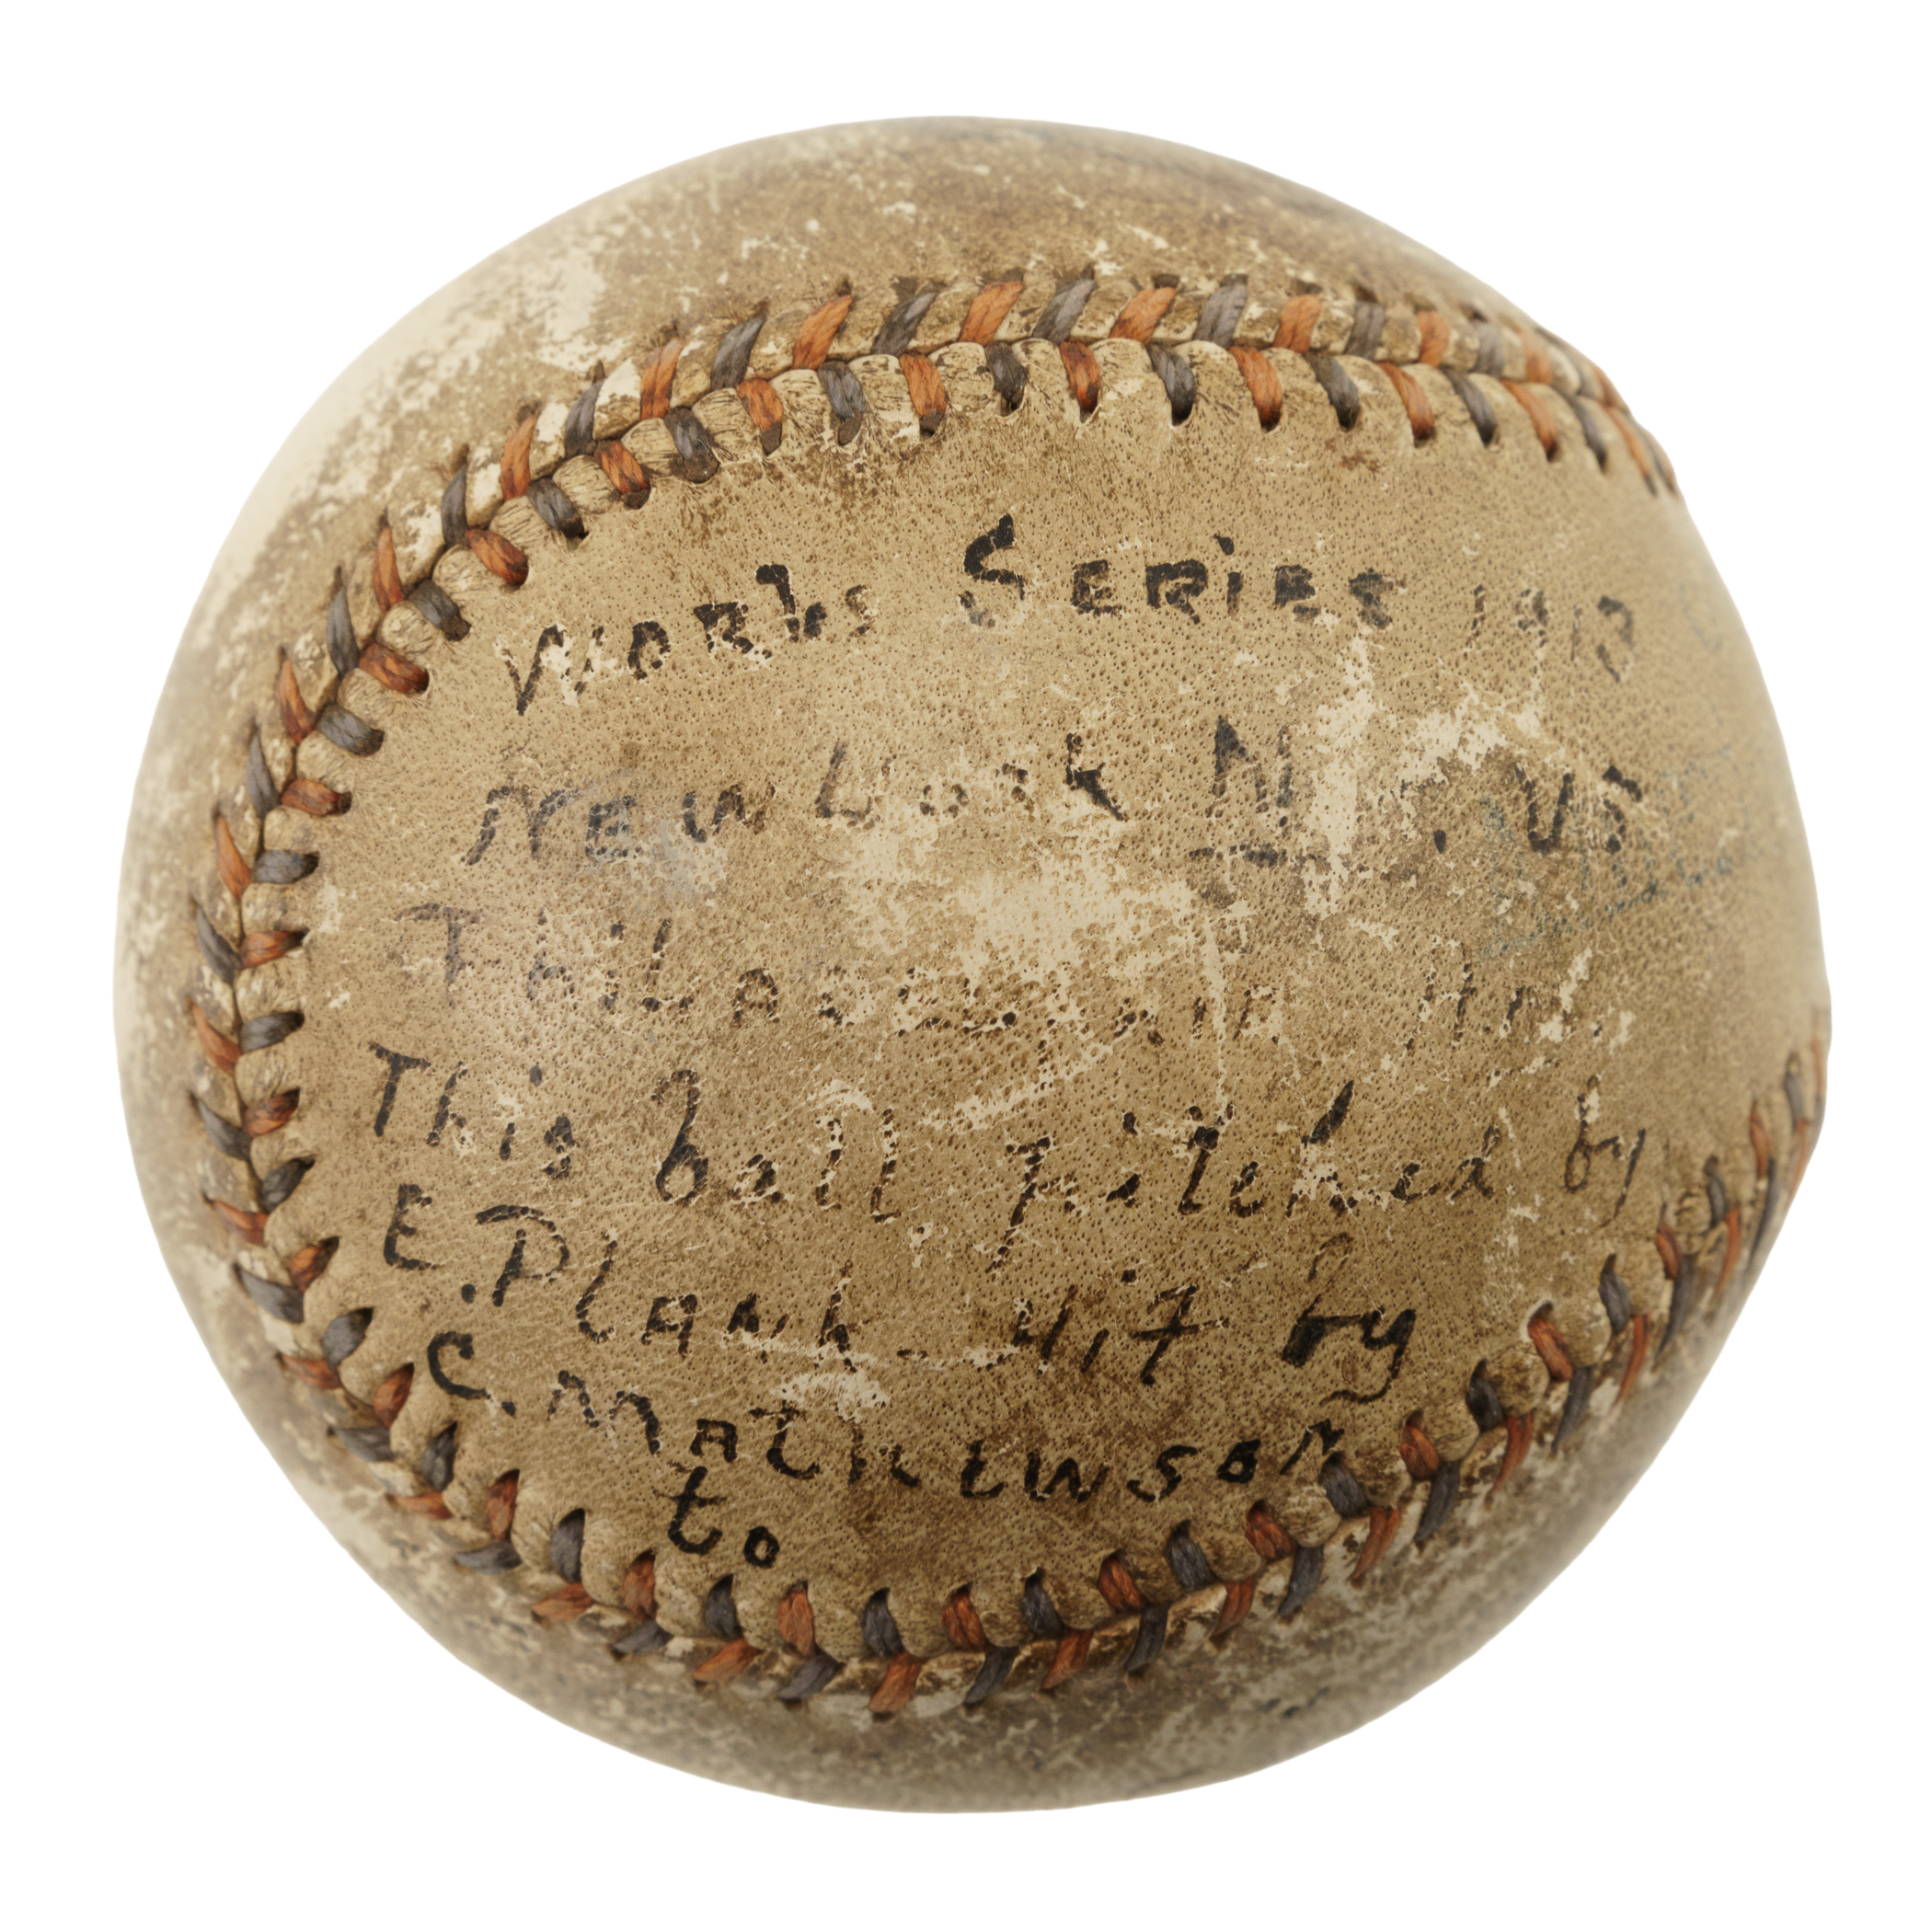 Worlds Series 1913
New York N. vs
Philadelphia
This ball pitched by
E. Plank hit by
C. Mathewson
to